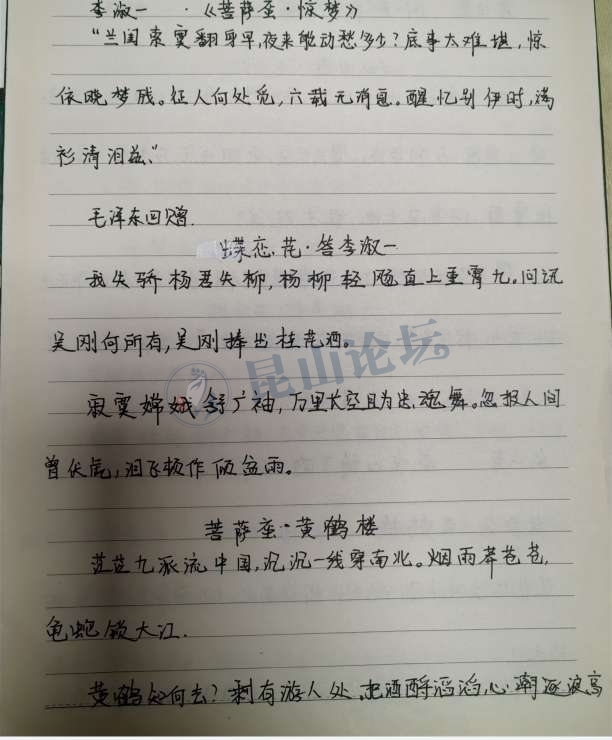 李淑一 ·《菩萨蛮·惊梦》
“兰闺索寞翻身早,夜来触动愁多少?底事太难堪,惊
侬晓梦残。征人何处觅,六载无消息。醒忆别伊时,满
衫清泪滋。”
毛泽东回赠.
蝶恋花·答李淑一
我失骄杨君失柳,杨柳轻飏直上重霄九。问讯
吴刚何所有,吴刚捧出桂花酒。
寂寞嫦娥舒广袖,万里长空且为忠魂舞。忽报人间
曾伏虎,泪飞顿作倾盆雨。
昆山论坛
菩萨蛮·黄鹤楼
茫茫九派流中国,沉沉一线穿南北。烟雨莽苍苍,
龟蛇锁大江.
黄鹤知何去?剩有游人处.把酒酹滔滔,心潮逐浪高